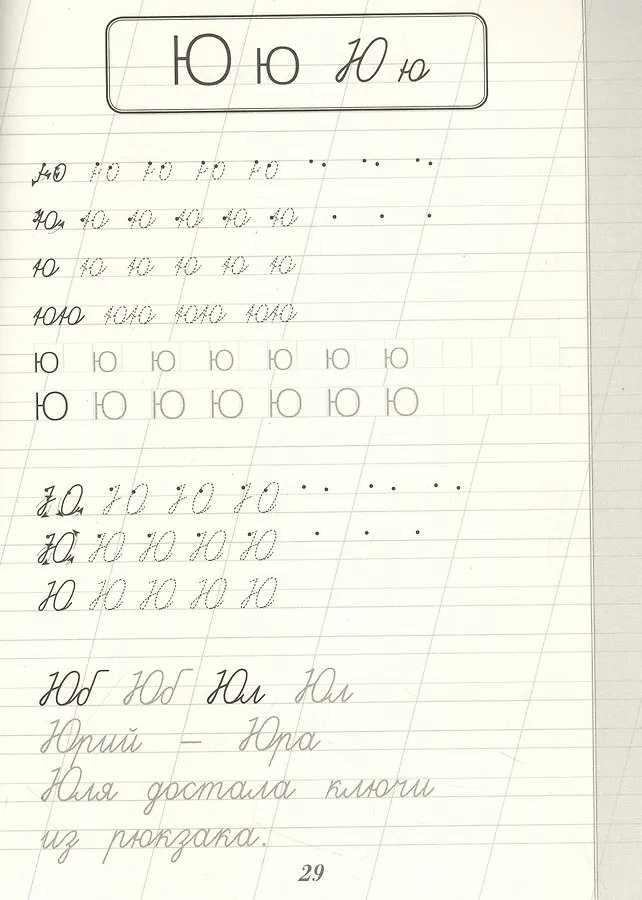 Ю ю Ю ю
ю ю ю ю ю
ю ю ю ю ю ю
ю ю ю ю ю ю
юю юю юю юю
ю ю ю ю ю ю ю
Ю Ю Ю Ю Ю Ю Ю
Ю Ю Ю Ю
Ю Ю Ю Ю Ю
Ю Ю Ю Ю Ю
Юб Юб Юл Юл
Юрий – Юра
Юля достала ключи
из рюкзака.
29